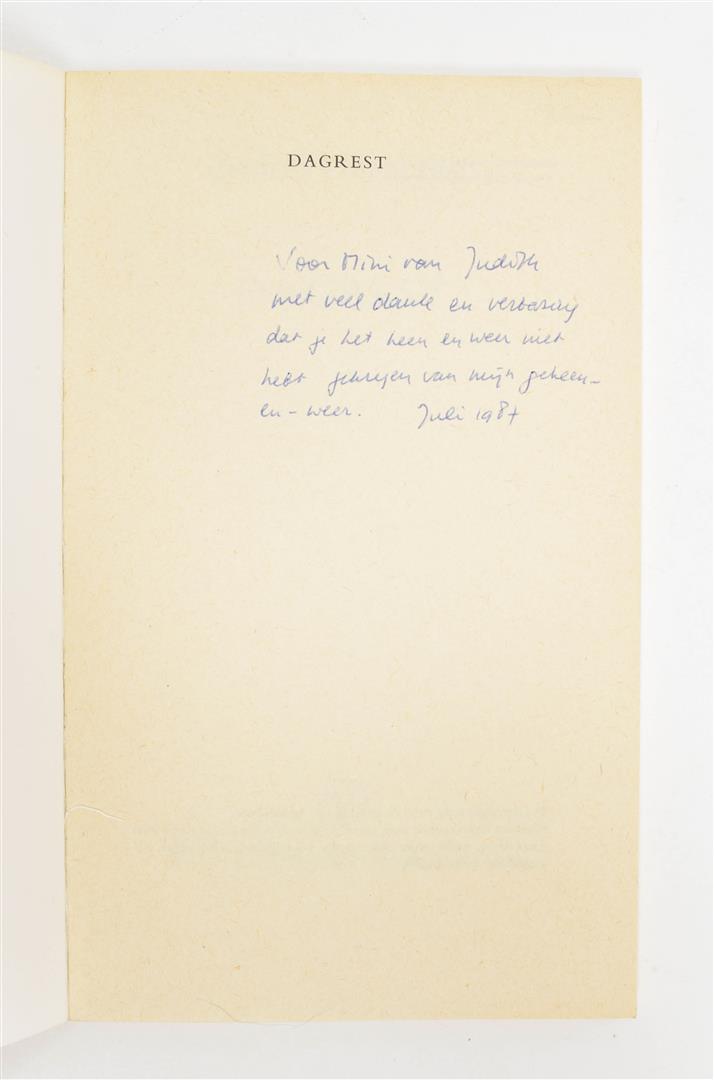 DAGREST
Voor Mini van Judith
met veel dank en verbazing
dat je het heen en weer niet
hebt gekregen van mijn geheen-
en-weer. Juli 1987